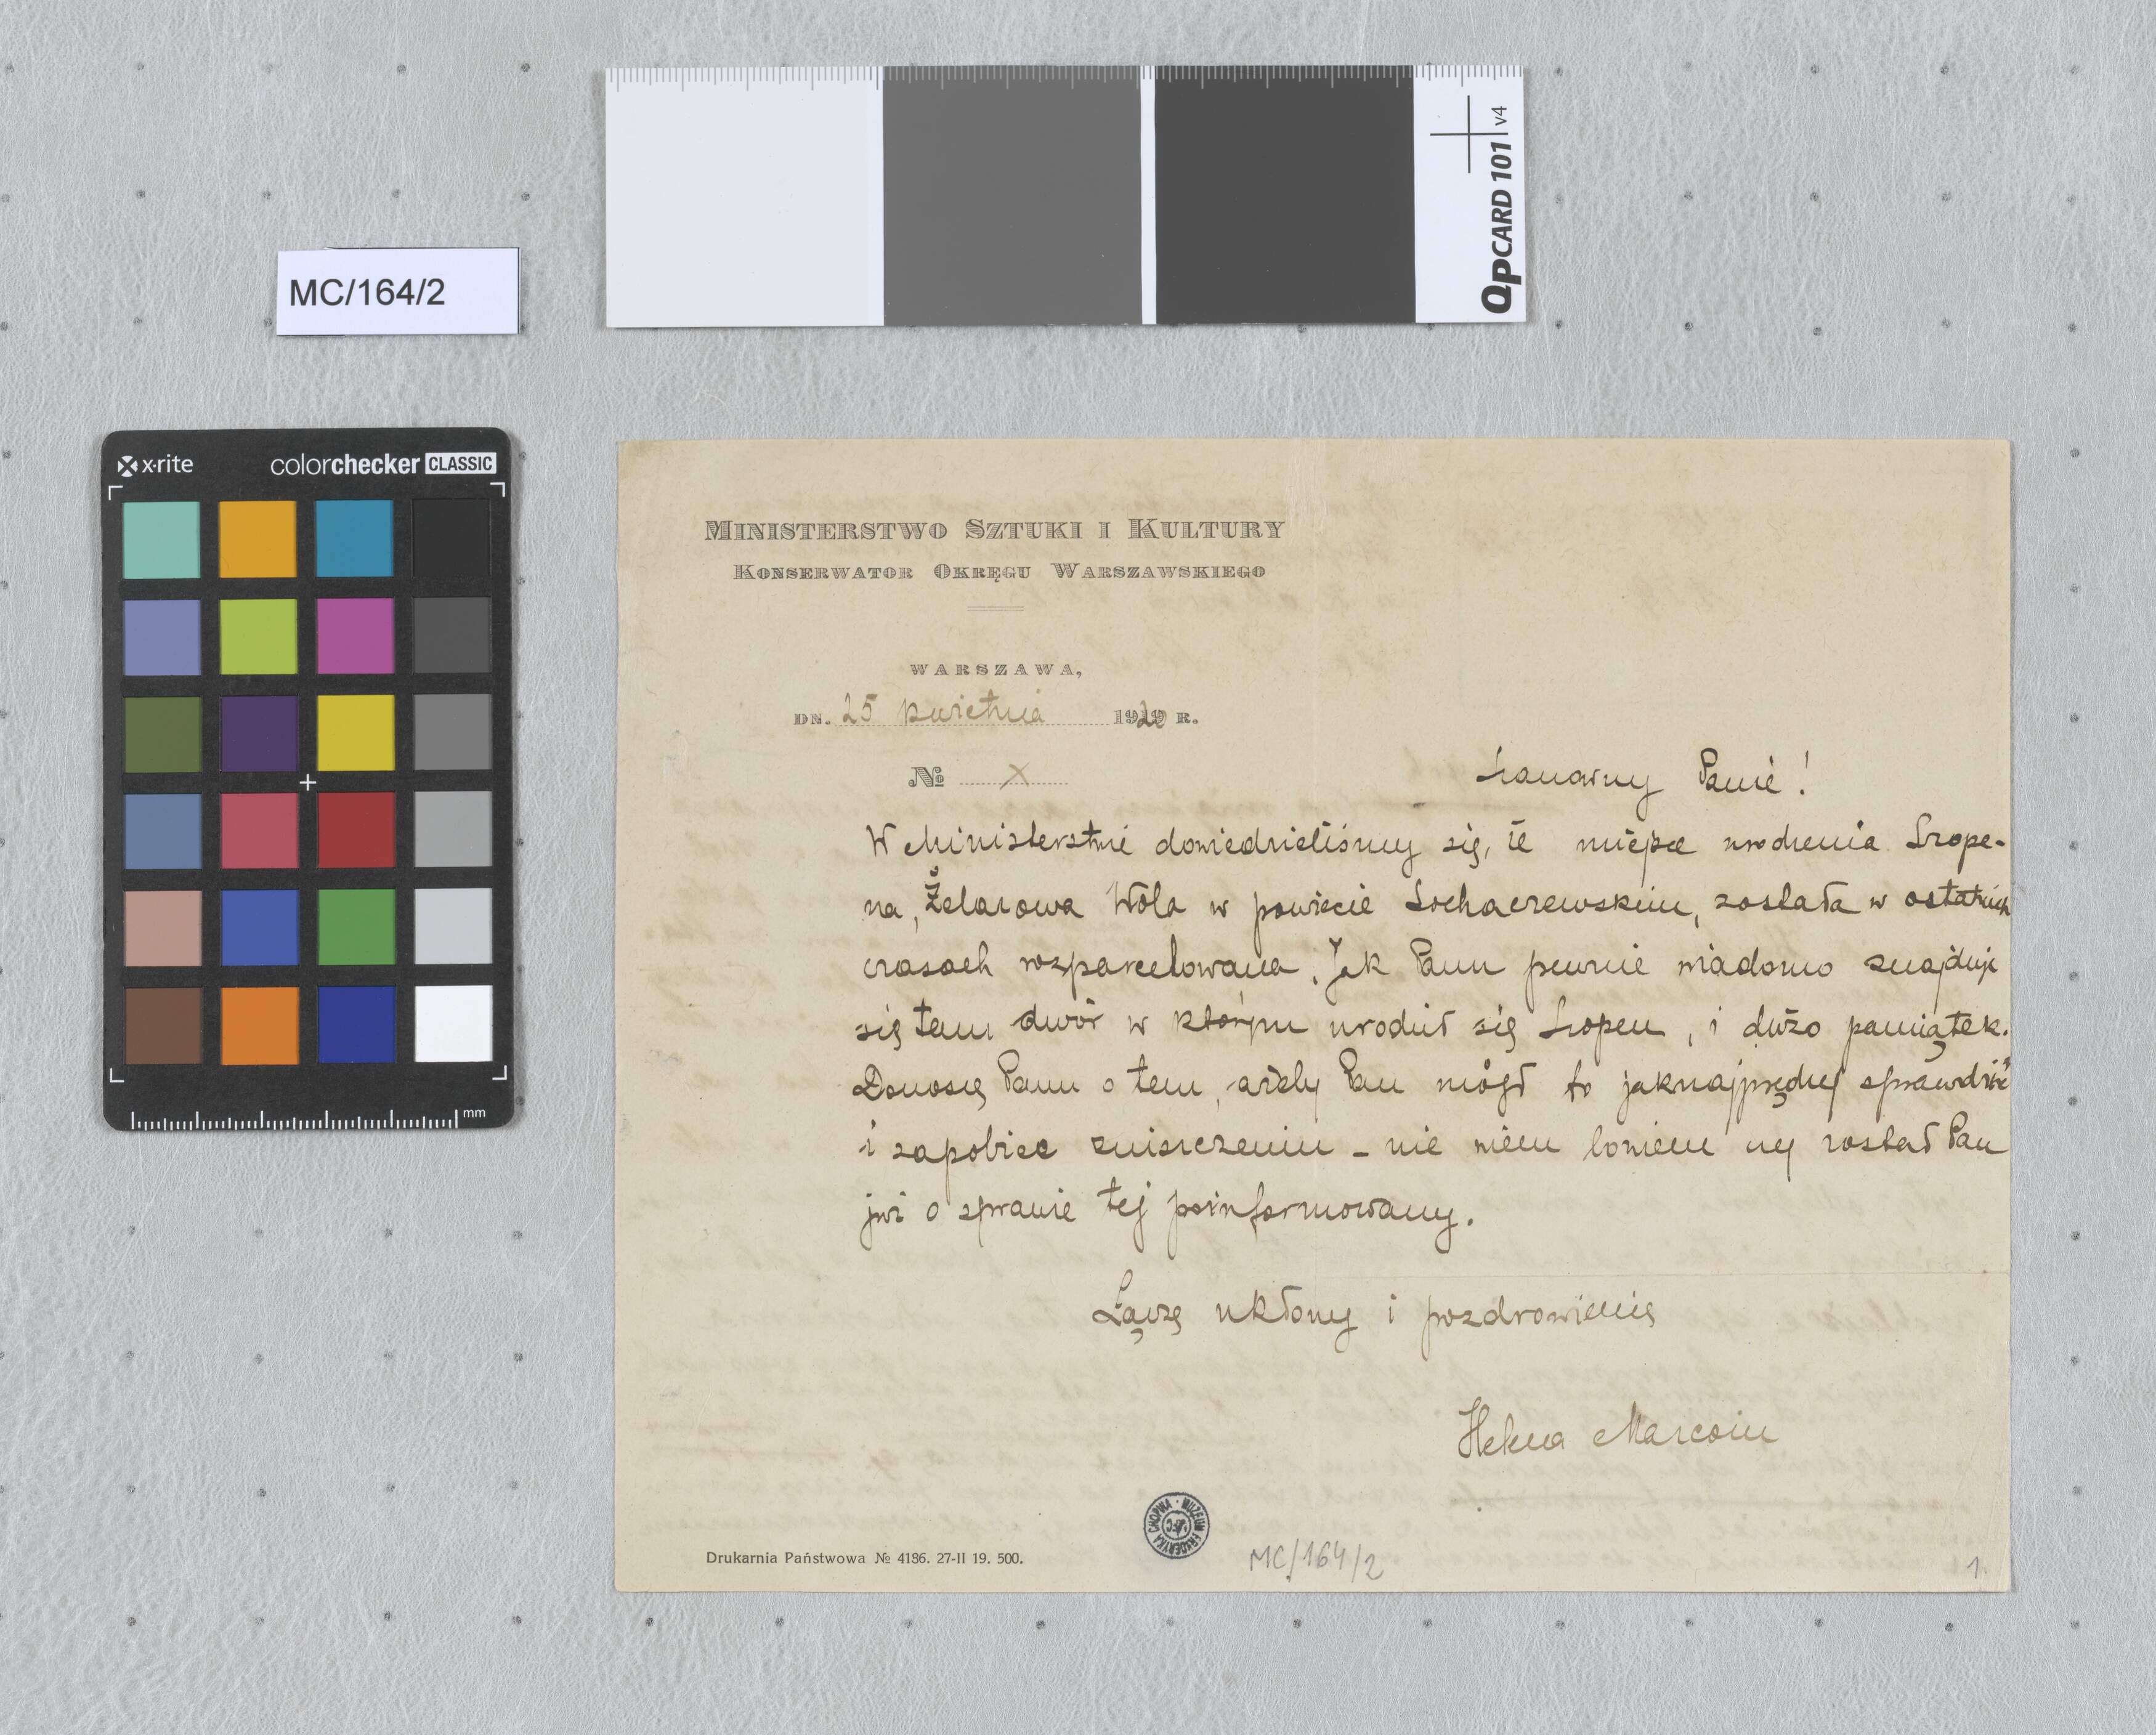 QPCARD 101 v4
MC/164/2
x·rite colorchecker CLASSIC
mm
MINISTERSTWO SZTUKI I KULTURY
KONSERWATOR OKRĘGU WARSZAWSKIEGO
WARSZAWA,
DN. 25 kwietnia 1920 R.
№ X
Szanowny Panie!
W Ministerstwie dowiedzieliśmy się, że miejsce urodzenia Szope-
na, Żelazowa Wola w powiecie Sochaczewskim, została w ostatnich
czasach rozparcelowana. Jak Panu pewnie wiadomo znajduje
się tam dwór w którym urodził się Szopen, i dużo pamiątek.
Donoszę Panu o tem, ażeby Pan mógł to jaknajprędzej sprawdzić
i zapobiec zniszczeniu – nie wiem bowiem czy został Pan
już o sprawie tej poinformowany.
Łączę ukłony i pozdrowienia
Helena
MUZEUM FRYDERYKA CHOPINA
Drukarnia Państwowa № 4186. 27-II 19. 500.
MC/164/2
1.